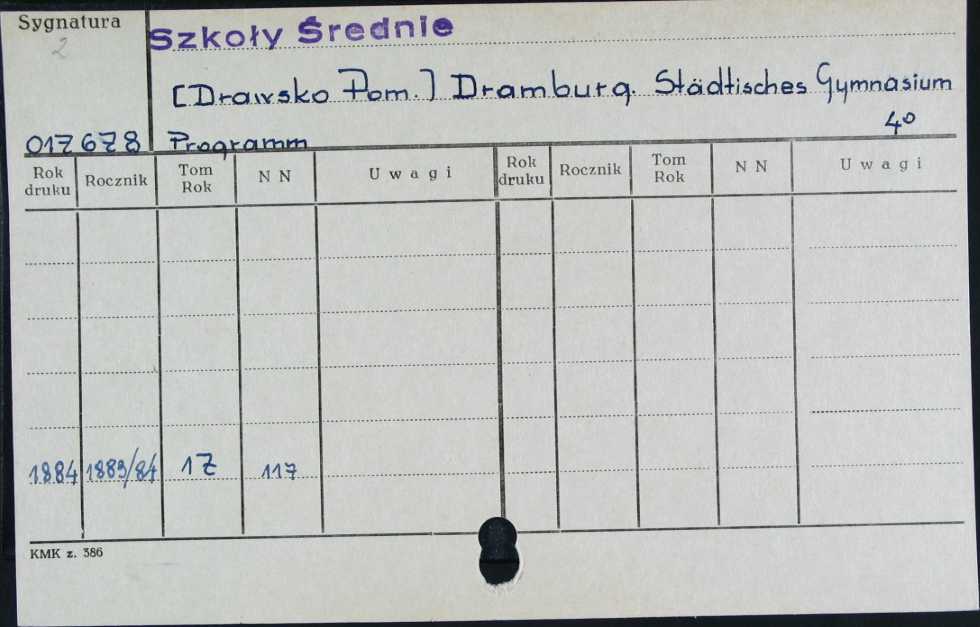 Sygnatura
2
Szkoły Średnie
[Drawsko Pom.] Dramburg. Städtisches Gymnasium
4°
017678 Programm
Rok druku Rocznik Tom Rok N N Uwagi Rok druku Rocznik Tom Rok N N Uwagi
1884 1883/84 17 117
KMK z. 386